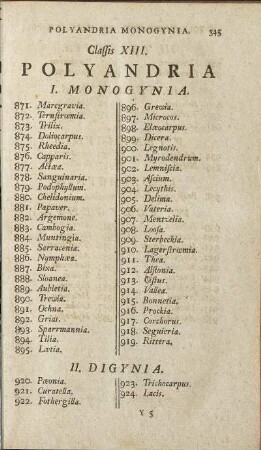 POLYANDRIA MONOGYNIA. 545
Classis XIII.
POLYANDRIA
I. MONOGYNIA.
871. Maregravia.
872. Ternstrœmia.
873. Trilix.
874. Doliocarpus.
875. Rheedia.
876. Capparis.
877. Actæa.
878. Sanguinaria.
879. Podophyllum.
880. Chelidonium.
881. Papaver.
882. Argemone.
883. Cambogia.
884. Muntingia.
885. Sarracenia.
886. Nymphæa.
887. Bixa.
888. Sloanea.
889. Aubletia.
890. Trewia.
891. Ochna.
892. Grias.
893. Sparrmannia.
894. Tilia.
895. Lætia.
896. Grewia.
897. Microcos.
898. Elæocarpus.
899. Dicera.
900. Legnotis.
901. Myrodendrum.
902. Lemniscia.
903. Ascium.
904. Lecythis.
905. Delima.
906. Vateria.
907. Mentzelia.
908. Loosa.
909. Sterbeckia.
910. Lagerstrœmia.
911. Thea.
912. Alstonia.
913. Cistus.
914. Vallea.
915. Bonnetia.
916. Prockia.
917. Corchorus.
918. Seguieria.
919. Rittera,
II. DIGYNIA.
920. Pæonia.
921. Curatella.
922. Fothergilla.
923. Trichocarpus.
924. Lacis.
Y 5